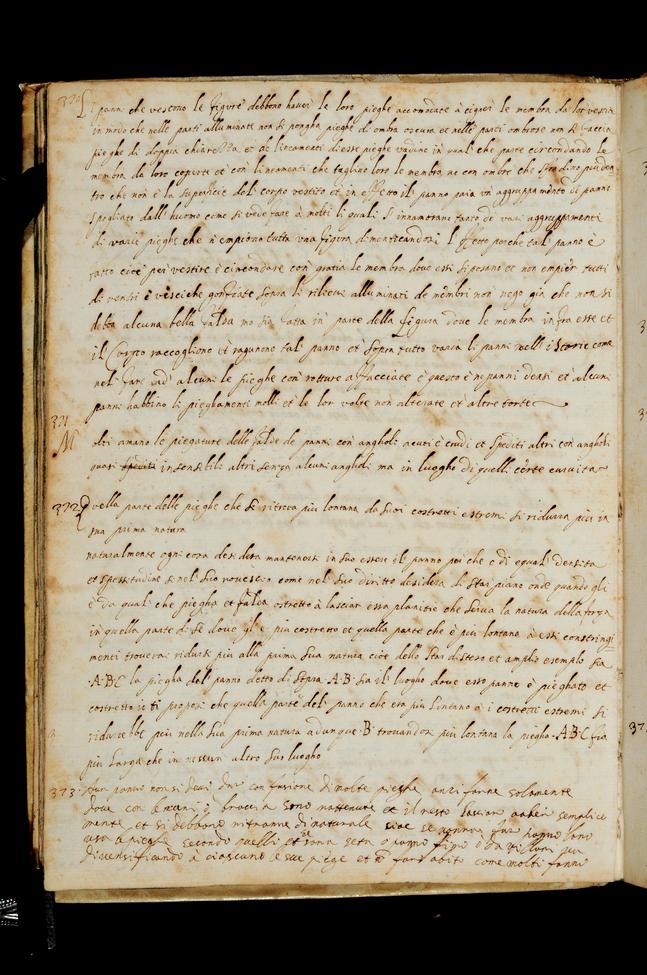 370 I pann che vestono le figure debbono haver le loro pieghe accomodate à cigner le membra da lor vestite
in modo che nelle parti alluminate non si pongha pieghe di ombra oscura et nelle parti ombrose non si faccia
pieghe di doppia chiarezza et de lineamenti di esse pieghe vadino in qual che parte circondando le
membra da loro coperte et con lineamenti che taglino loro le membra ne con ombre che sfondino piu den
tro che non è la superficie del corpo vestito et in effetto il panno paia un aggruppamento di panni
spogliato dall' huomo come si vede fare à molti li quali s' innamorano tanto de varij aggruppamenti
di varie pieghe che n'empiono tutta una figura dimenticandosi l'effetto perche tal panno è
fatto cioè per vestire è circondare con gratia le membra dove essi si posano et non empier tutti
di ventri è vesciche gonfiate sopra li rilievi alluminati de membri non nego gia che non si
debba alcuna bella falda ma sia fatta in parte della figura dove le membra infra esse et
il Corpo raccoglione et ragunono tal panno et sopra tutto varia li panni nelli istorie come
nel fare ad alcuni le pieghe con rotture affacciate è questo è ne panni densi et alcun
panni habbino li pieghamenti molli et le lor volte non laterate et altre torte
371
Molti amano le piegature delle falde de panni con angholi acuti è crudi et spediti altri con angholi
quasi insensibili altri senza alcuni angholi ma in luogho di quelli certe curvita
372 Quella parte delle pieghe che si ritrova piu lontana da suoi costretti estremi si ridurra piu in
sua prima natura
naturalmente ogni cosa desidera mantenersi in suo essere il panno perche è di equal densita
et spessitudine si nel suo rovescio come nel suo diritto desidera di star piano onde quando gli
è da qual che piegha et falda costretto à lasciar essa planitie che serva la natura della forza
in quella parte di se dove gl'è piu costretto et quella parte che è piu lontana à essi constringi
menti troverai ridursi piu alla prima sua natura cioè dello star disteso et amplio esemplo sia
·A·B·C la piegha del panno detto di sopra ·A·B· sia il luogho dove esso panno è pieghato et
costretto io ti proposi che quella parte del panno che era piu lontano à i costretti estremi si
ridurrebbe piu nella sua prima natura adunque ·B· trovandosi piu lontana la piegha ·A·B·C fia
piu larga che in nessun altro suo luogho
373· non si deve dar confusione di molte pieghe anzi farne solamente
dove con le mani è braccia sono rattenute et il resto lasciare cader semplice
mente et si debbono ritrarre di naturale cioè se vorrai far panno lano
usa le pieghe secondo quelli et se sara seta o panno fino o da villani va
diversificando à ciascuno le sue piege et non fare abito come molti fanno